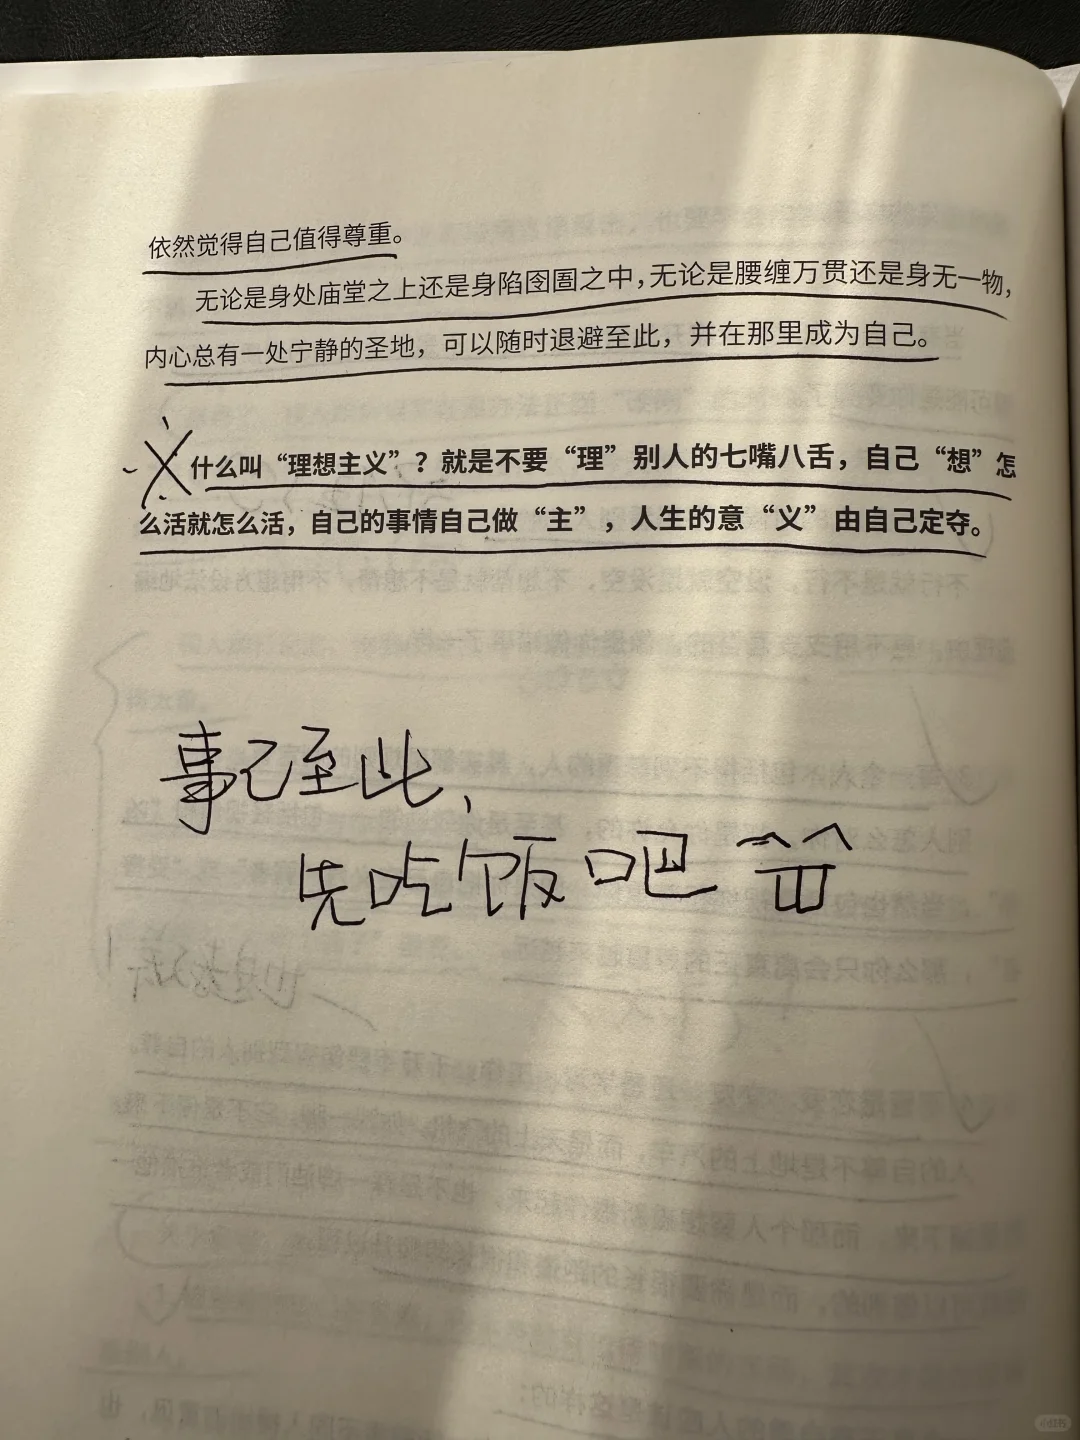 依然觉得自己值得尊重。
无论是身处庙堂之上还是身陷囹圄之中，无论是腰缠万贯还是身无一物，
内心总有一处宁静的圣地，可以随时退避至此，并在那里成为自己。
什么叫“理想主义”？就是不要“理”别人的七嘴八舌，自己“想”怎
么活就怎么活，自己的事情自己做“主”，人生的意“义”由自己定夺。
事已至此，
先吃饭吧
小红书